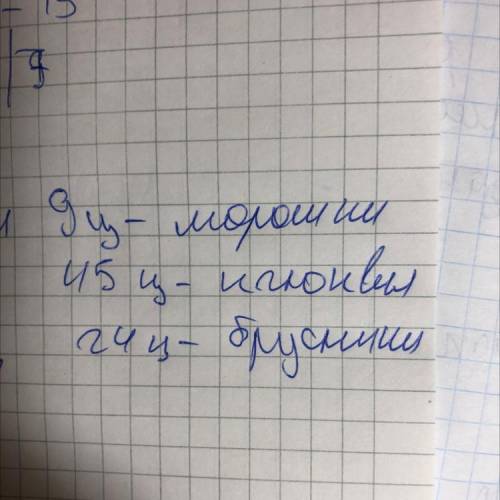 - 15
7
9 ц - морошки
45 ц - клюквы
24 ц - брусники